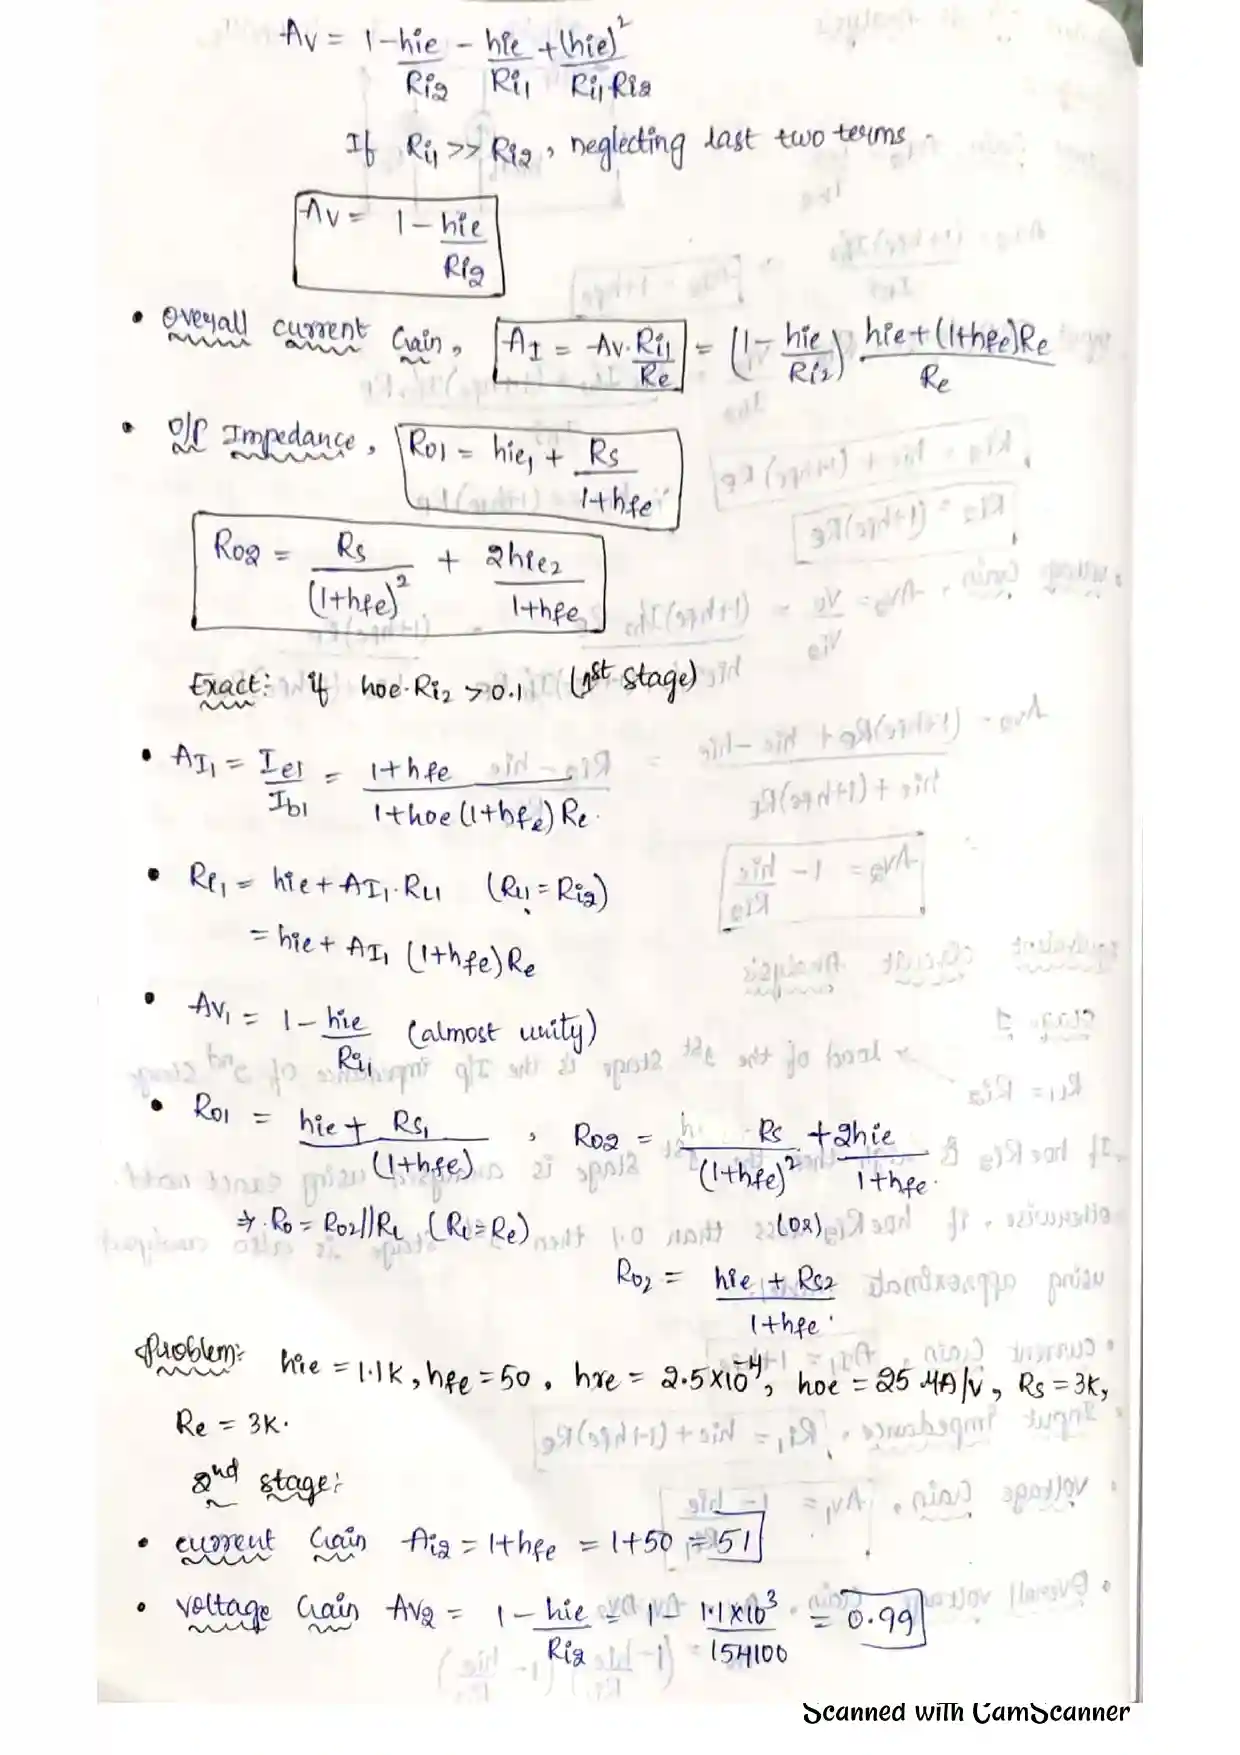 Av = 1 - hie/Ri2 - hie/Ri1 + (hie)²/Ri1 Ri2
If Ri1 >> Ri2, neglecting last two terms.
Av = 1 - hie/Ri2
• Overall current Gain, AI = Av. Ri1/Re = (1 - hie/Ri2) hie + (1+hfe)Re/Re
• O/P Impedance, Ro1 = hie1 + Rs/1+hfe
Ro2 = Rs/(1+hfe)² + 2hie2/1+hfe
Exact: if hoe.Ri2 > 0.1 (1st stage)
• AI1 = Ie1/Ib1 = 1+hfe/1+hoe(1+hfe)Re.
• Ri1 = hie + AI1.RL1 (RL1 = Ri2)
= hie + AI1 (1+hfe)Re
• Av1 = 1 - hie/Ri1 (almost unity)
• Ro1 = hie + Rs1/(1+hfe) , Ro2 = Rs/(1+hfe)² + 2hie/1+hfe.
⇒ Ro = Ro2//RL (RL = Re) (or)
Ro2 = hie + Rs2/1+hfe.
Problem: hie = 1.1K, hfe = 50, hre = 2.5×10⁻⁴, hoe = 25 μA/V, Rs = 3K,
Re = 3K.
2nd stage:
• current Gain Ai2 = 1+hfe = 1+50 = 51
• voltage Gain Av2 = 1 - hie/Ri2 = 1 - 1.1×10³/154100 = 0.99
Scanned with CamScanner